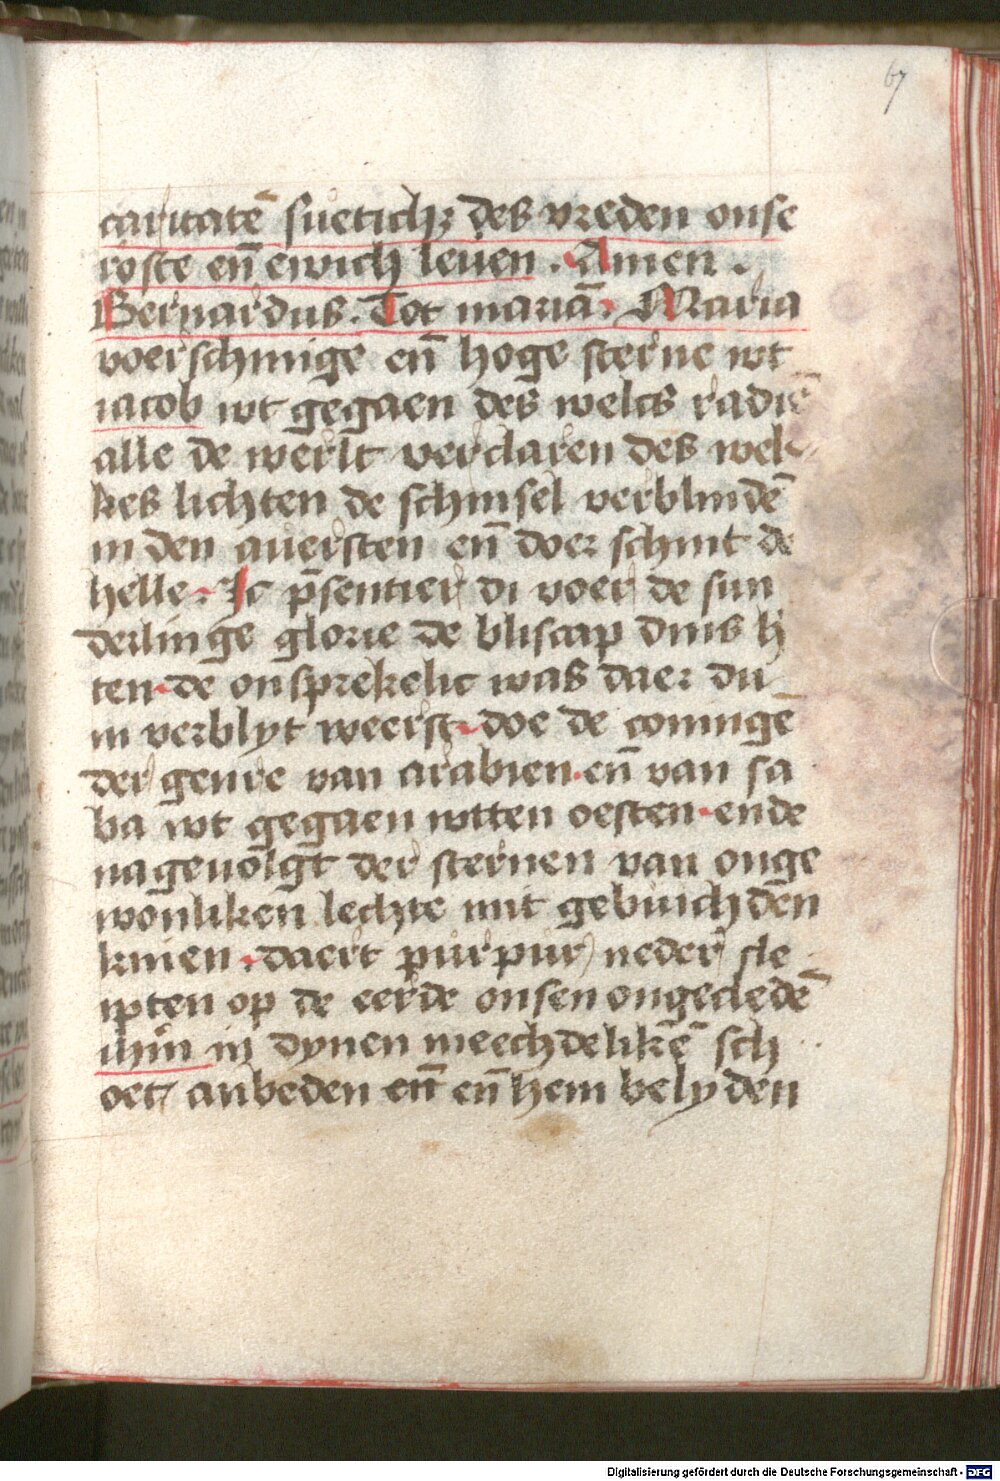 67
caritatē suetich₂ des vreden onse
roste en̄ ewich leuen . Amen .
Bernardus . Tot mariā . Maria
voerschinige en̄ hoge sterne wt
iacob wt gegaen des welcs radiē
alle de werlt verclaren des wel
kes lichten de schinsel verblindē
in den auersten en̄ doer schint de
helle . Ic p̄sentier di voer de sun
derlinge glorie de bliscap dins h
ten . de onsprekelic was daer du
in verblyt weerst . doe de coningē
der genre van arabien . en̄ van sa
ba wt gegaen wtten oesten . ende
nageuolgt der sternen van onge
wonliken lechte mit gebuichden
knien . daert purpur neder sle
ipten op de eerde onsen ongecledē
ihm̄ in dynen meechdelikē sch
oet anbeden en̄ en̄ hem belyden
Digitalisierung gefördert durch die Deutsche Forschungsgemeinschaft - DFG